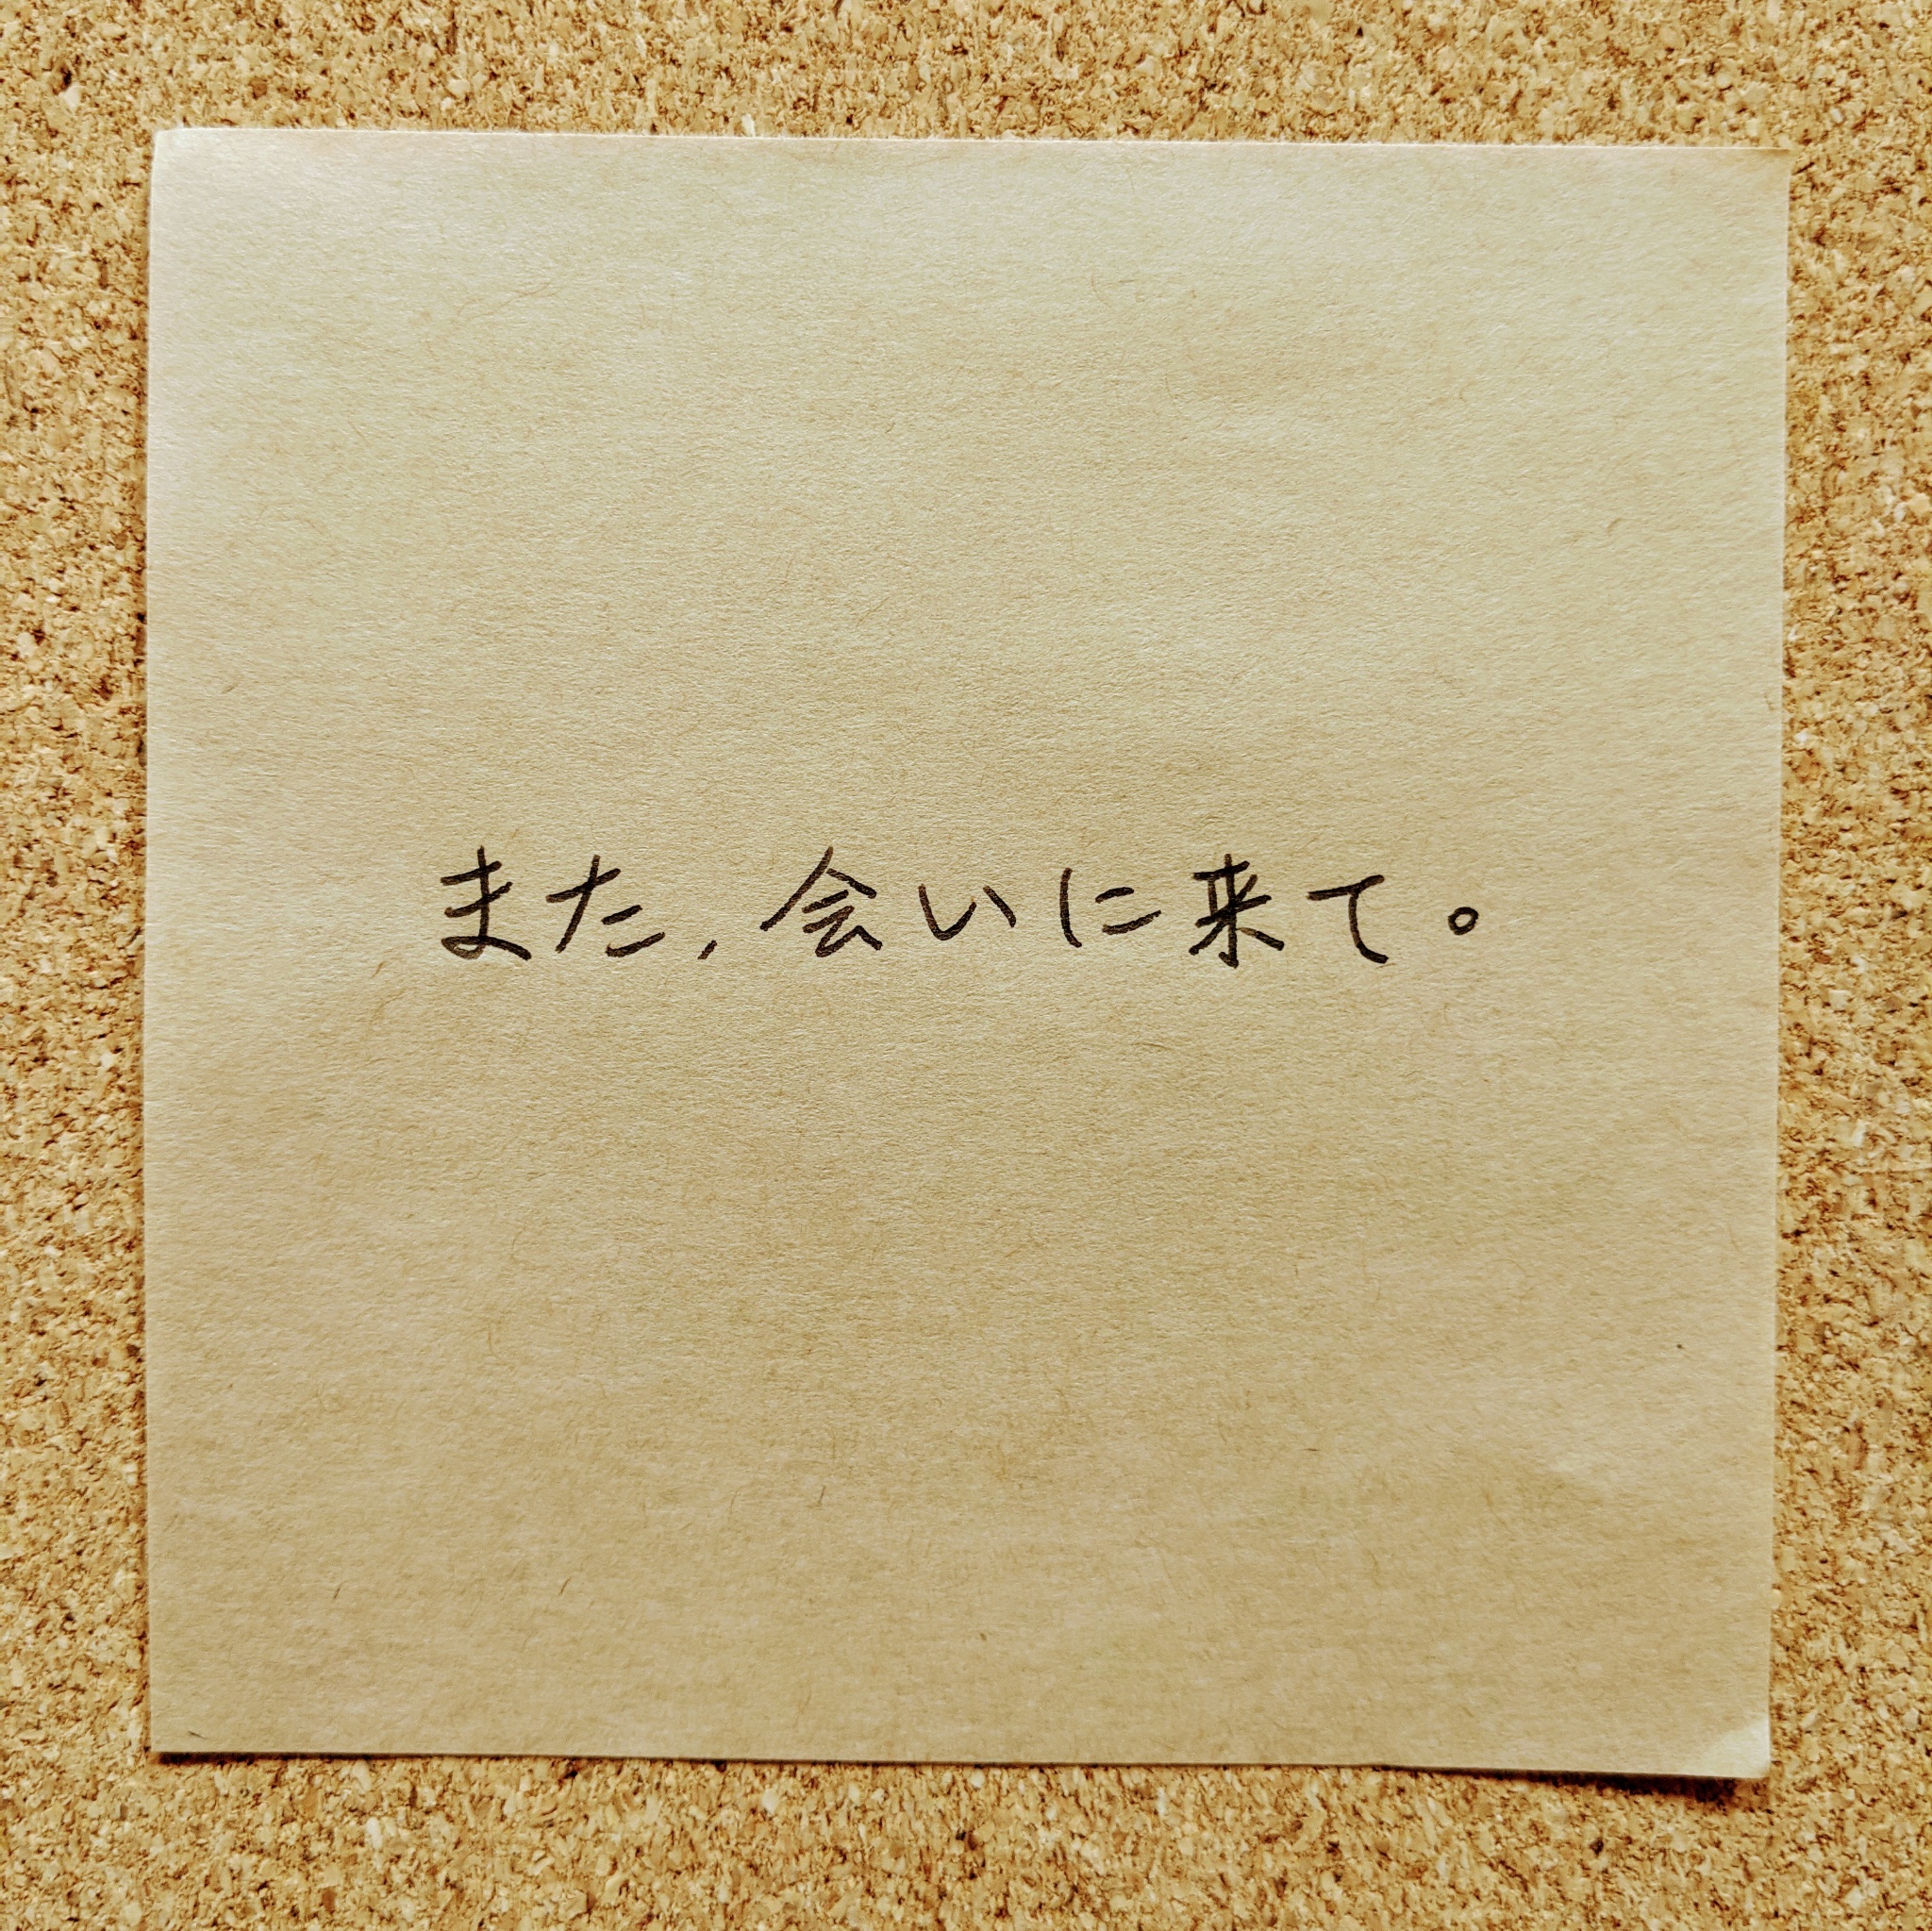 また,会いに来て。